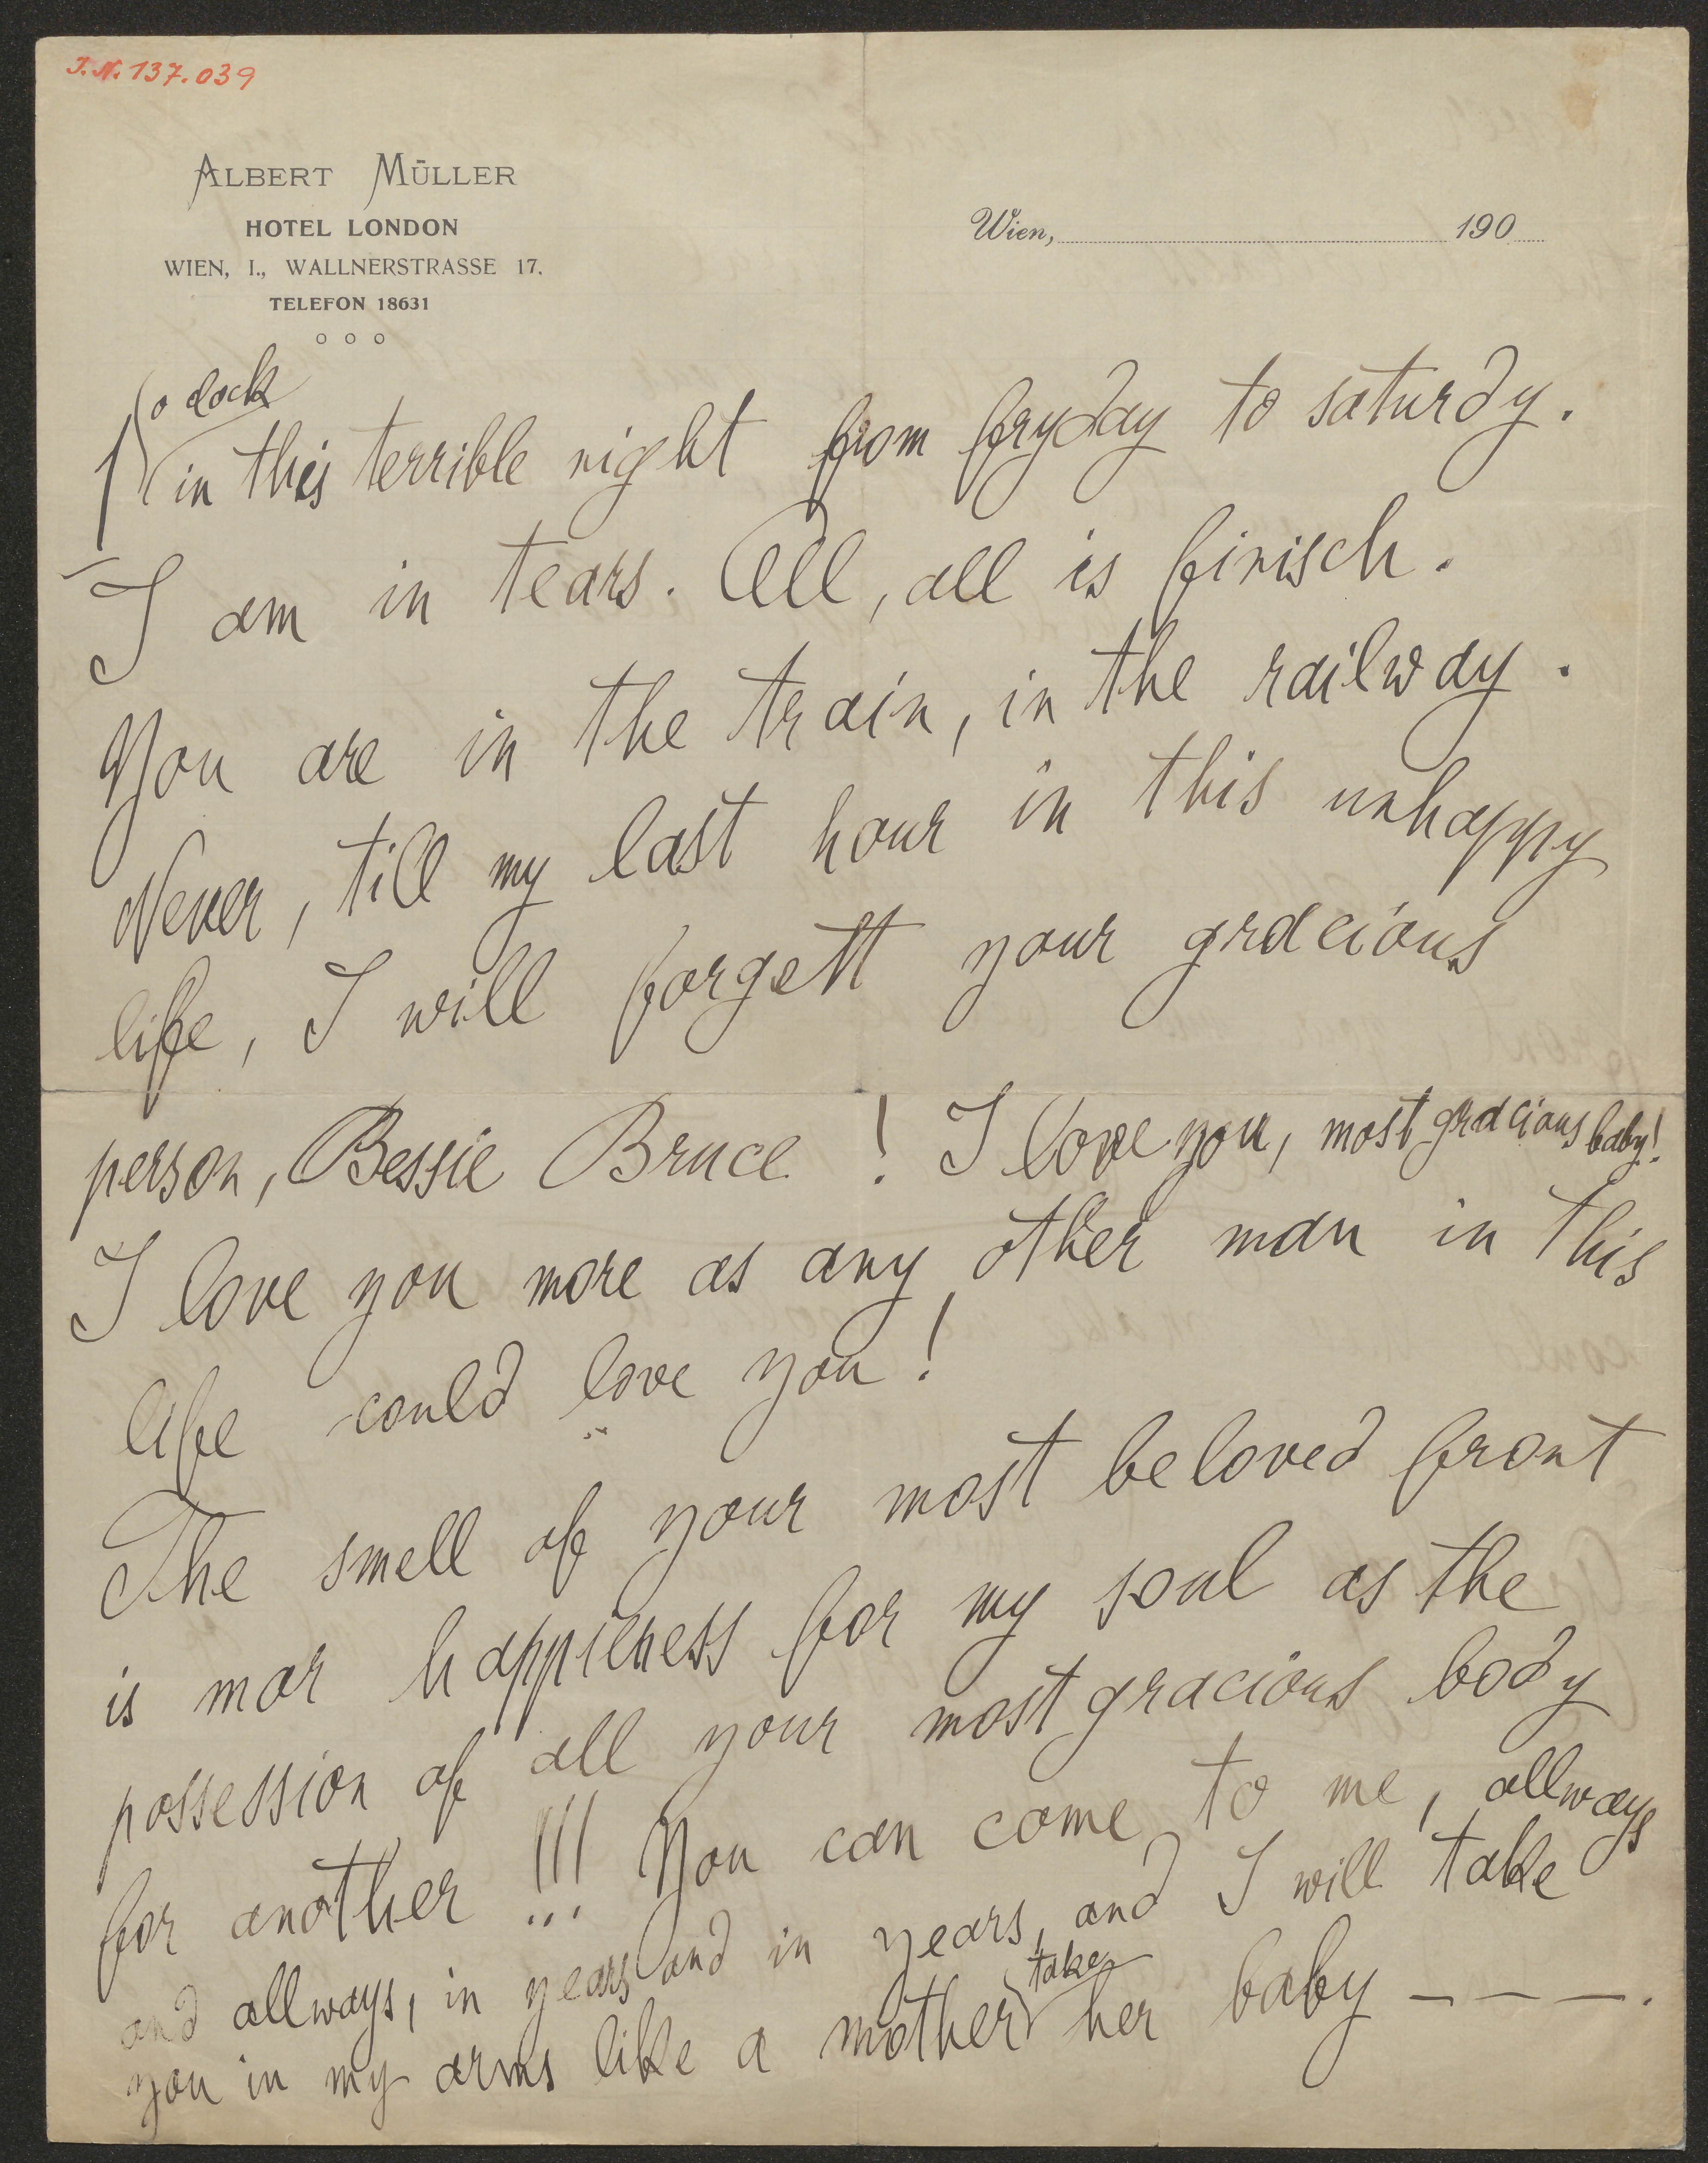 J.N. 137.039
ALBERT MÜLLER
HOTEL LONDON
WIEN, I., WALLNERSTRASSE 17.
TELEFON 18631
Wien, 190
1 o clock
in this terrible night from fryday to saturdy.
I am in tears. All, all is finisch.
You are in the train, in the railway.
Never, till my last hour in this unhappy
life, I will forgett your gracious
person, Bessie Bruce! I love you, most gracious baby!
I love you more as any other man in this
life could love you!
The smell of your most beloved front
is mor happieness for my soul as the
possession of all your most gracious body
for another!!! You can come to me, allways
and allways, in years and in years, and I will take
you in my arms like a mother take her baby — — —.